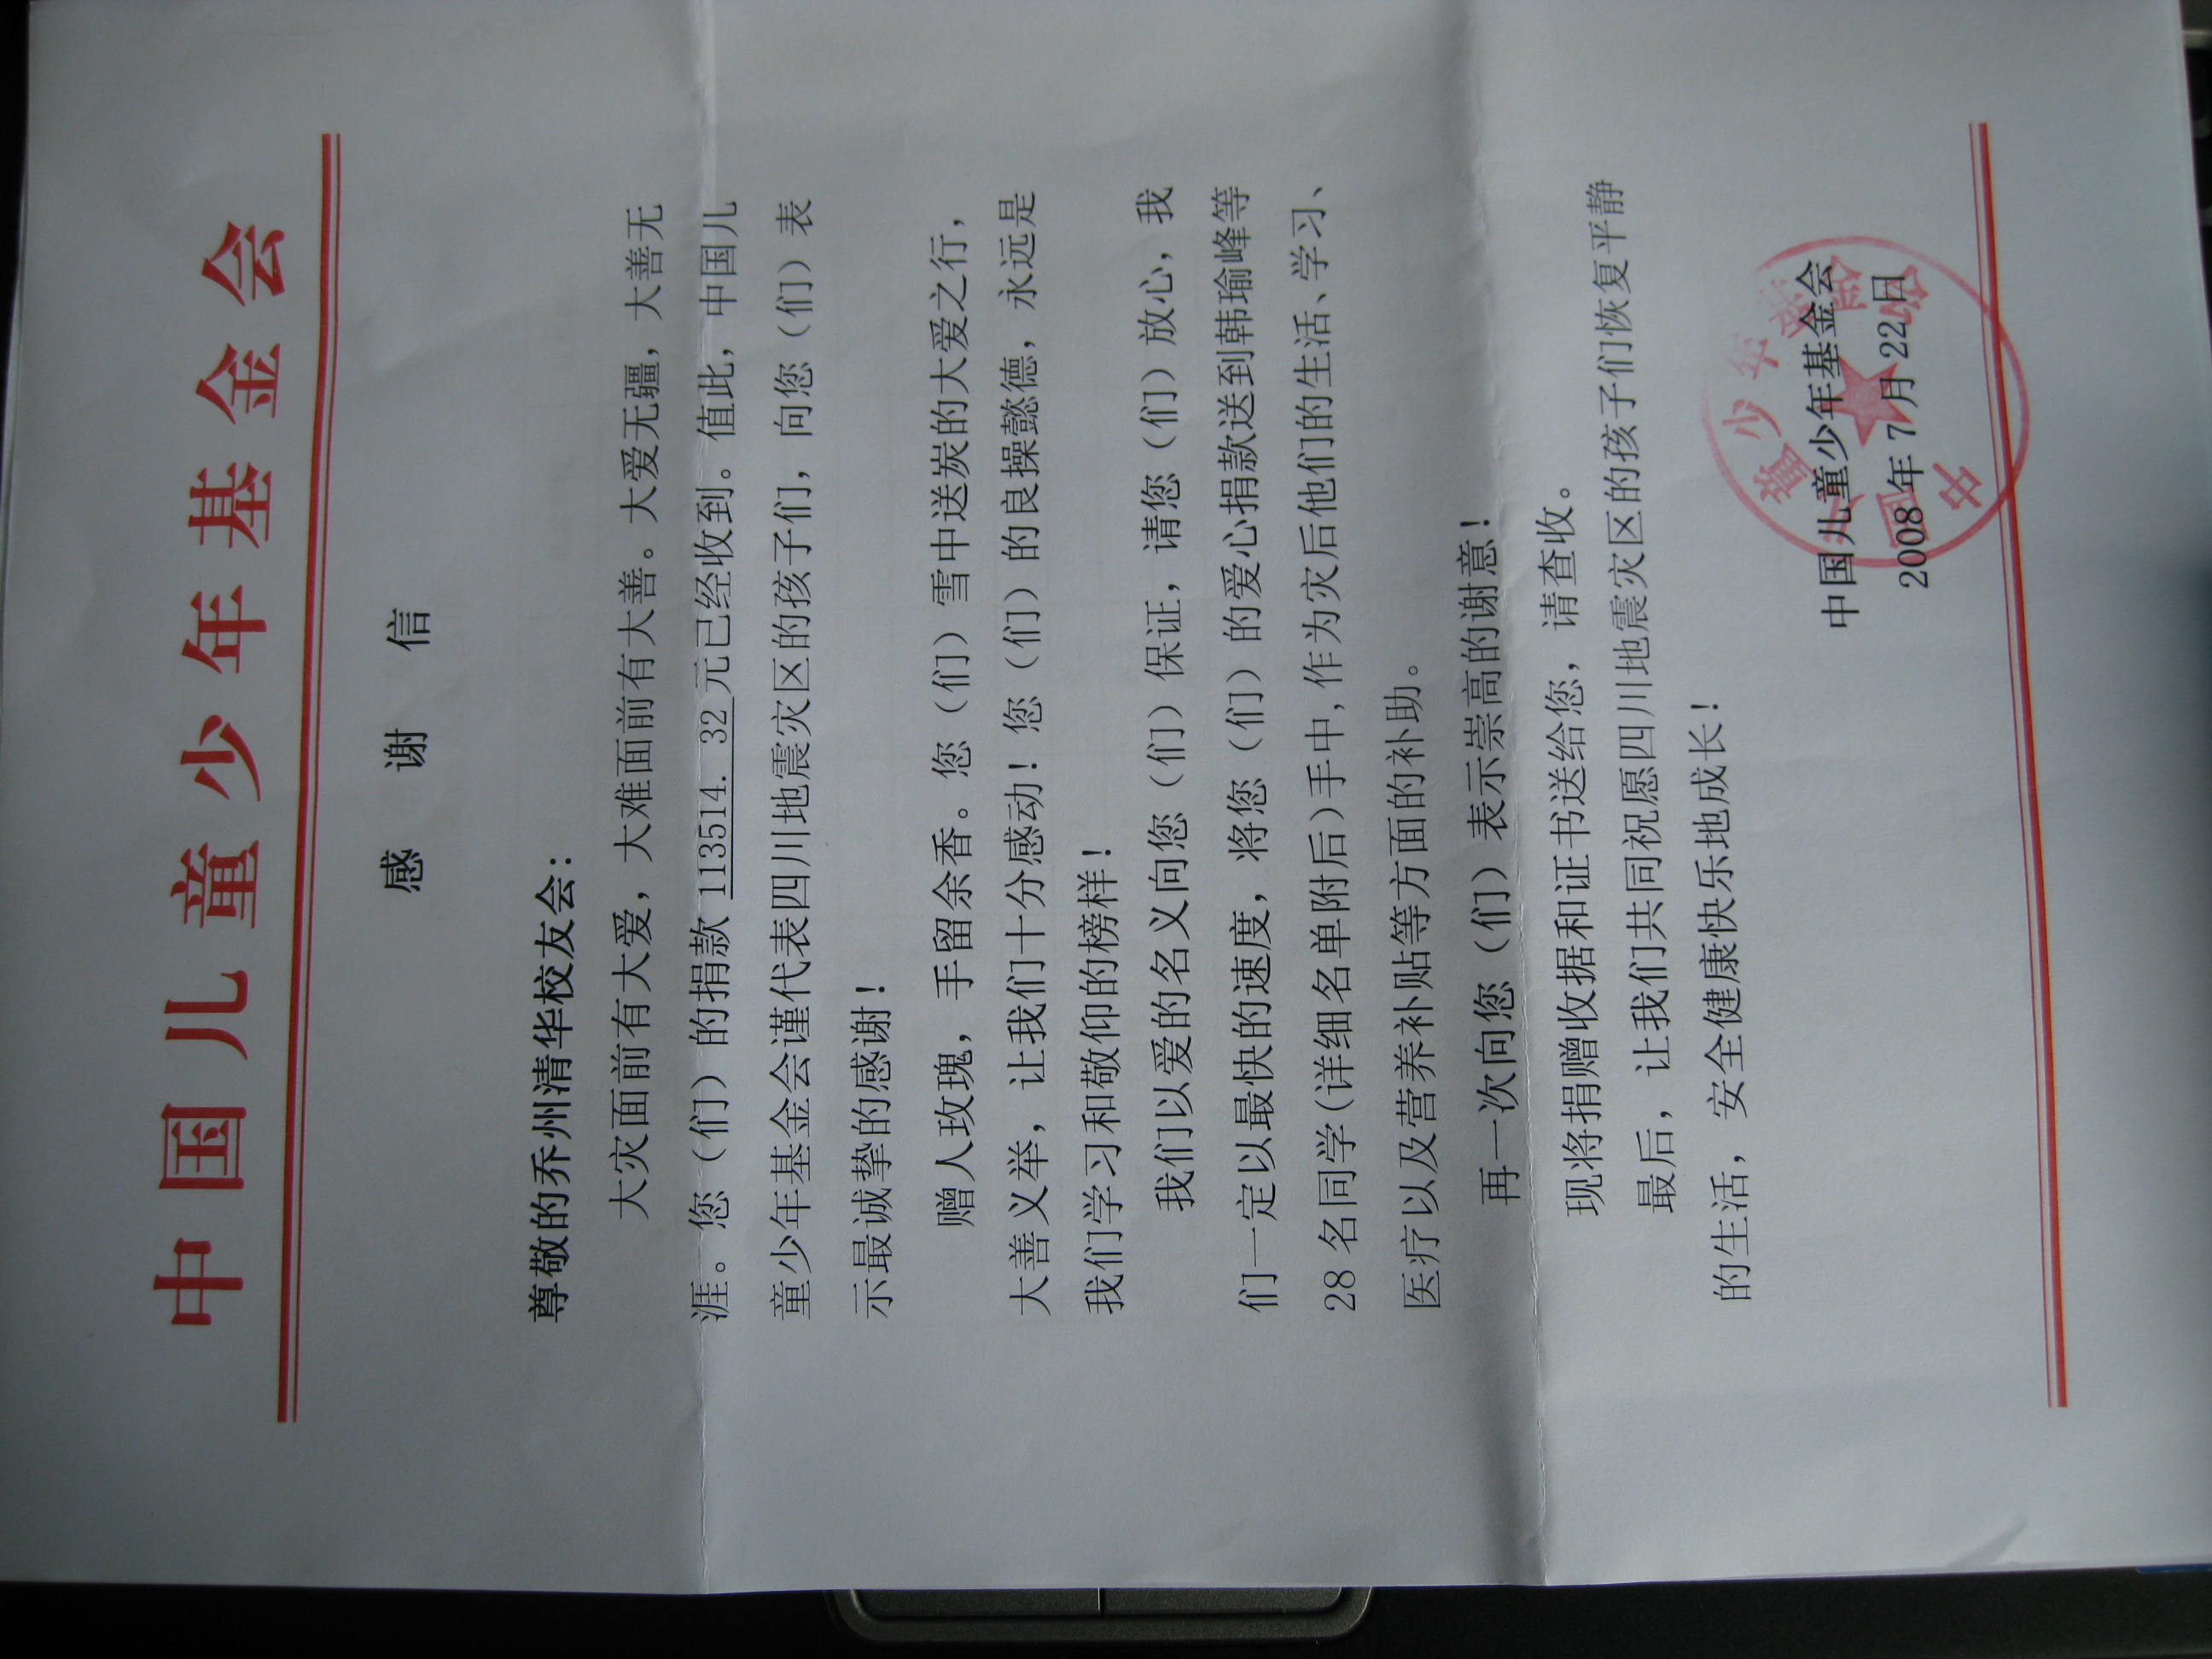 中国儿童少年基金会
感 谢 信
尊敬的乔州清华校友会：
大灾面前有大爱，大难面前有大善。大爱无疆，大善无
涯。您（们）的捐款 113514. 32 元已经收到。值此，中国儿
童少年基金会谨代表四川地震灾区的孩子们，向您（们）表
示最诚挚的感谢！
赠人玫瑰，手留余香。您（们）雪中送炭的大爱之行，
大善义举，让我们十分感动！您（们）的良操懿德，永远是
我们学习和敬仰的榜样！
我们以爱的名义向您（们）保证，请您（们）放心，我
们一定以最快的速度，将您（们）的爱心捐款送到韩瑜峰等
28 名同学(详细名单附后)手中,作为灾后他们的生活、学习、
医疗以及营养补贴等方面的补助。
再一次向您（们）表示崇高的谢意！
现将捐赠收据和证书送给您，请查收。
最后，让我们共同祝愿四川地震灾区的孩子们恢复平静
的生活，安全健康快乐地成长！
中国儿童少年基金会
2008年 7月 22日
中国儿童少年基金会